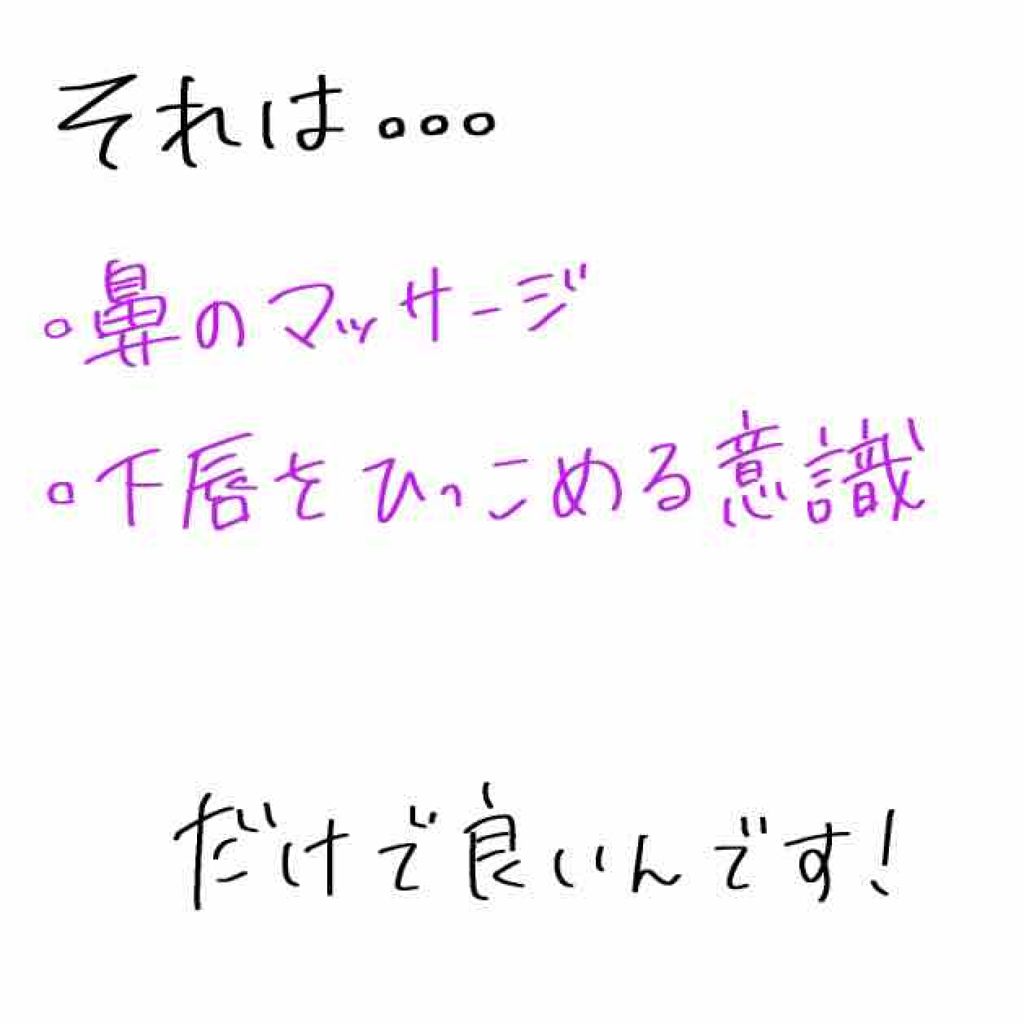 それは。。。
・鼻のマッサージ
・下唇をひっこめる意識
だけで良いんです!